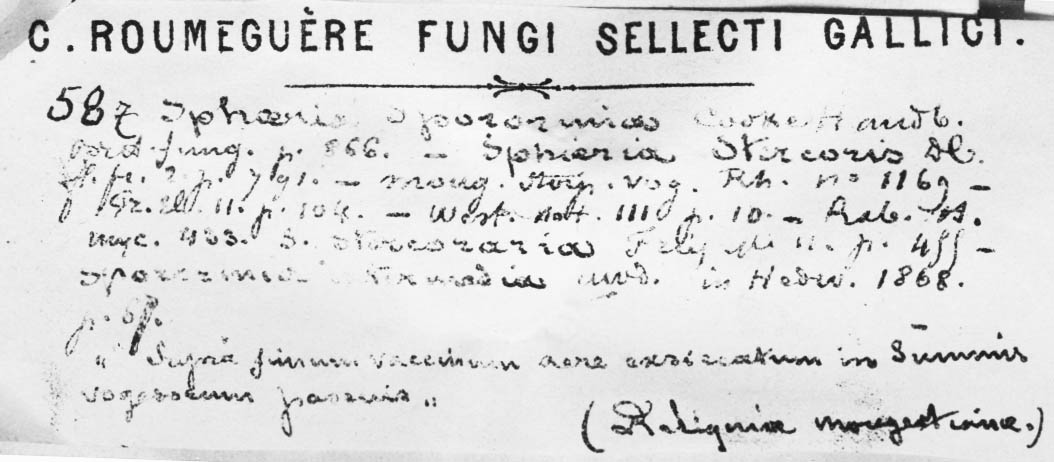 C. ROUMEGUÈRE FUNGI SELLECTI GALLICI.
587 Sphaeria Sporormia Cooke Handb.
brit. fung. p. 866. — Sphaeria Stercoris DC.
fl. fr. 2. p. 791. — Moug. stirp. vog. Rh. no 1169 —
Fr. El. 11. p. 104. — West. nott. 111 p. 10. — Rab. H.
myc. 433. S. Stercoraria p. 455 —
Sporormia in Hedw. 1868.
p.
" Supra fimum vaccinum aere exsiccatum in Summis
vogesorum pascuis „
(Reliquiae mougeotianae.)